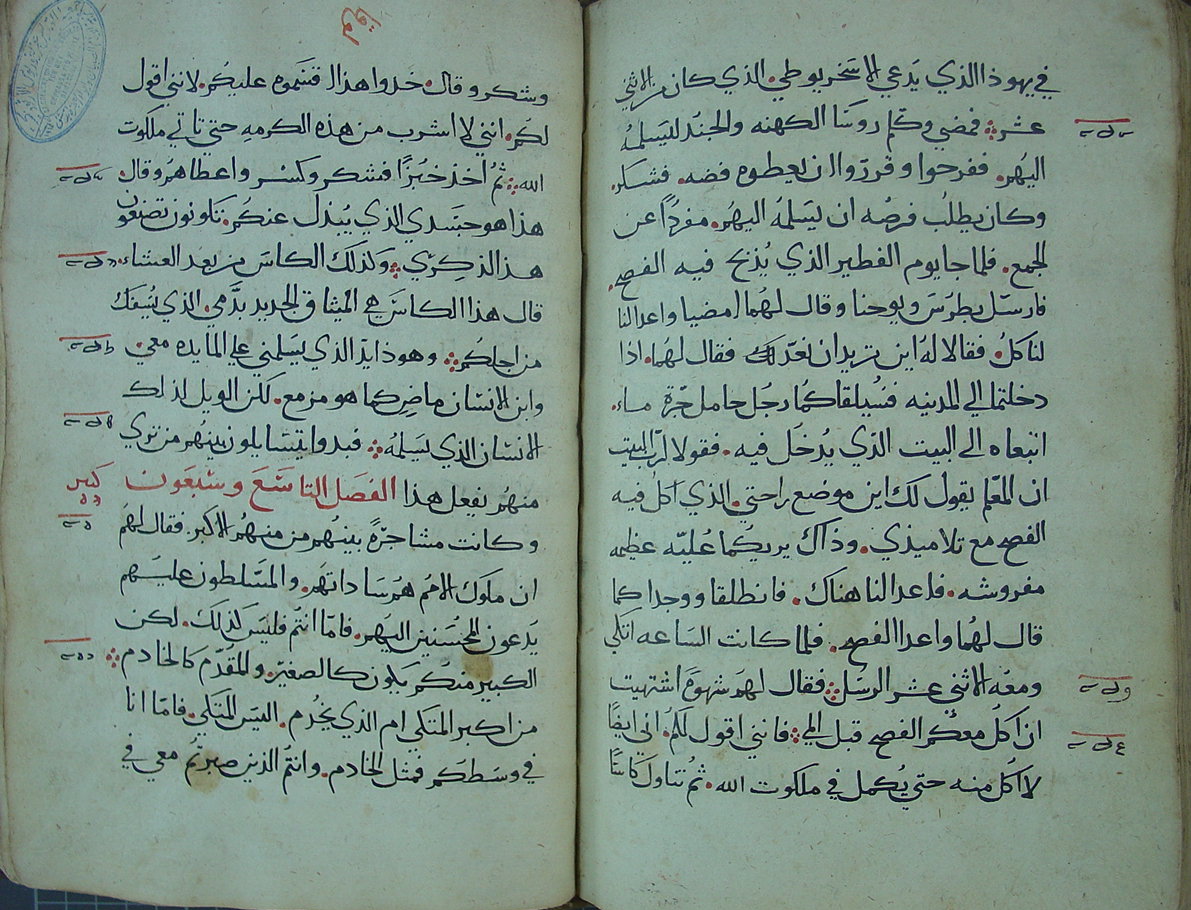 في يهوذا الذي يدعي الاسخريوطي. الذي كان من الاثني
عشر؛ فمضي وكلم روسا الكهنه والجند ليسلمه
اليهم. ففرحوا وقرروا ان يعطوه فضه. فشكر.
وكان يطلب فرصه ان يسلمه اليهم. مفردًا عن
الجمع. فلما جا يوم الفطير الذي يُذبح فيه الفصح.
فارسل بطرس ويوحنا وقال لهما امضيا واعدا لنا
لناكل. فقالا له اين تريد ان نعد لك فقال لهما. اذا
دخلتما الي المدينه فسيلقاكما رجل حامل جرة ماء.
اتبعاه الى البيت الذي يدخل فيه. فقولا لرب البيت
ان المعلم يقول لك اين موضع راحتي. الذي اكل فيه
الفصح مع تلاميذي. وذاك يريكما عُليّه عظيمه
مفروشه. فاعدا لنا هناك. فانطلقا ووجدا كما
قال لهما واعدا الفصح. فلما كانت الساعه اتكي
ومعه الاثني عشر الرسل؛ فقال لهم شهوةً اشتهيت
ان اكل معكم الفصح قبل المي؛ فانني اقول لكم. اني ايضًا
لا اكل منه حتي يُكمل في ملكوت الله. ثم تناول كاسًا
وشكر وقال. خدوا هذا فاقتسموه عليكم. لانني اقول
لكم. انني لا اشرب من هذه الكرمه حتى تاتي ملكوت
الله؛ ثم اخذ خبزًا فشكر وكسر واعطاهم وقال
هذا هو جسدي الذي يُبذل عنكم. تكونون تصنعون
هذا لذكري؛ وكذلك الكاس من بعد العشاء.
قال هذا الكاس هي الميثاق الجديد بدمي. الذي يُسفك
من اجلكم؛ وهوذا يد الذي يسلمني علي المايده معي.
وابن الانسان ماضٍ كما هو مزمع. لكن الويل لذلك
الانسان الذي يسلمه؛ فبدوا يتسايلون بينهم من تري
منهم يفعل هذا الفصل التاسع وسبعون كبير
وكانت مشاجرةً بينهم من منهم الاكبر. فقال لهم
ان ملوك الامم هم ساداتهم. والمسلطون عليهم
يدعون المحسنين اليهم. فاما انتم فليس كذلك. لكن
الكبير منكم يكون كالصغير. والمقدم كالخادم؛
من اكبر المتكي ام الذي يخدم. اليس المتكي. فاما انا
في وسطكم فمثل الخادم. وانتم الذين صبرتم معي في